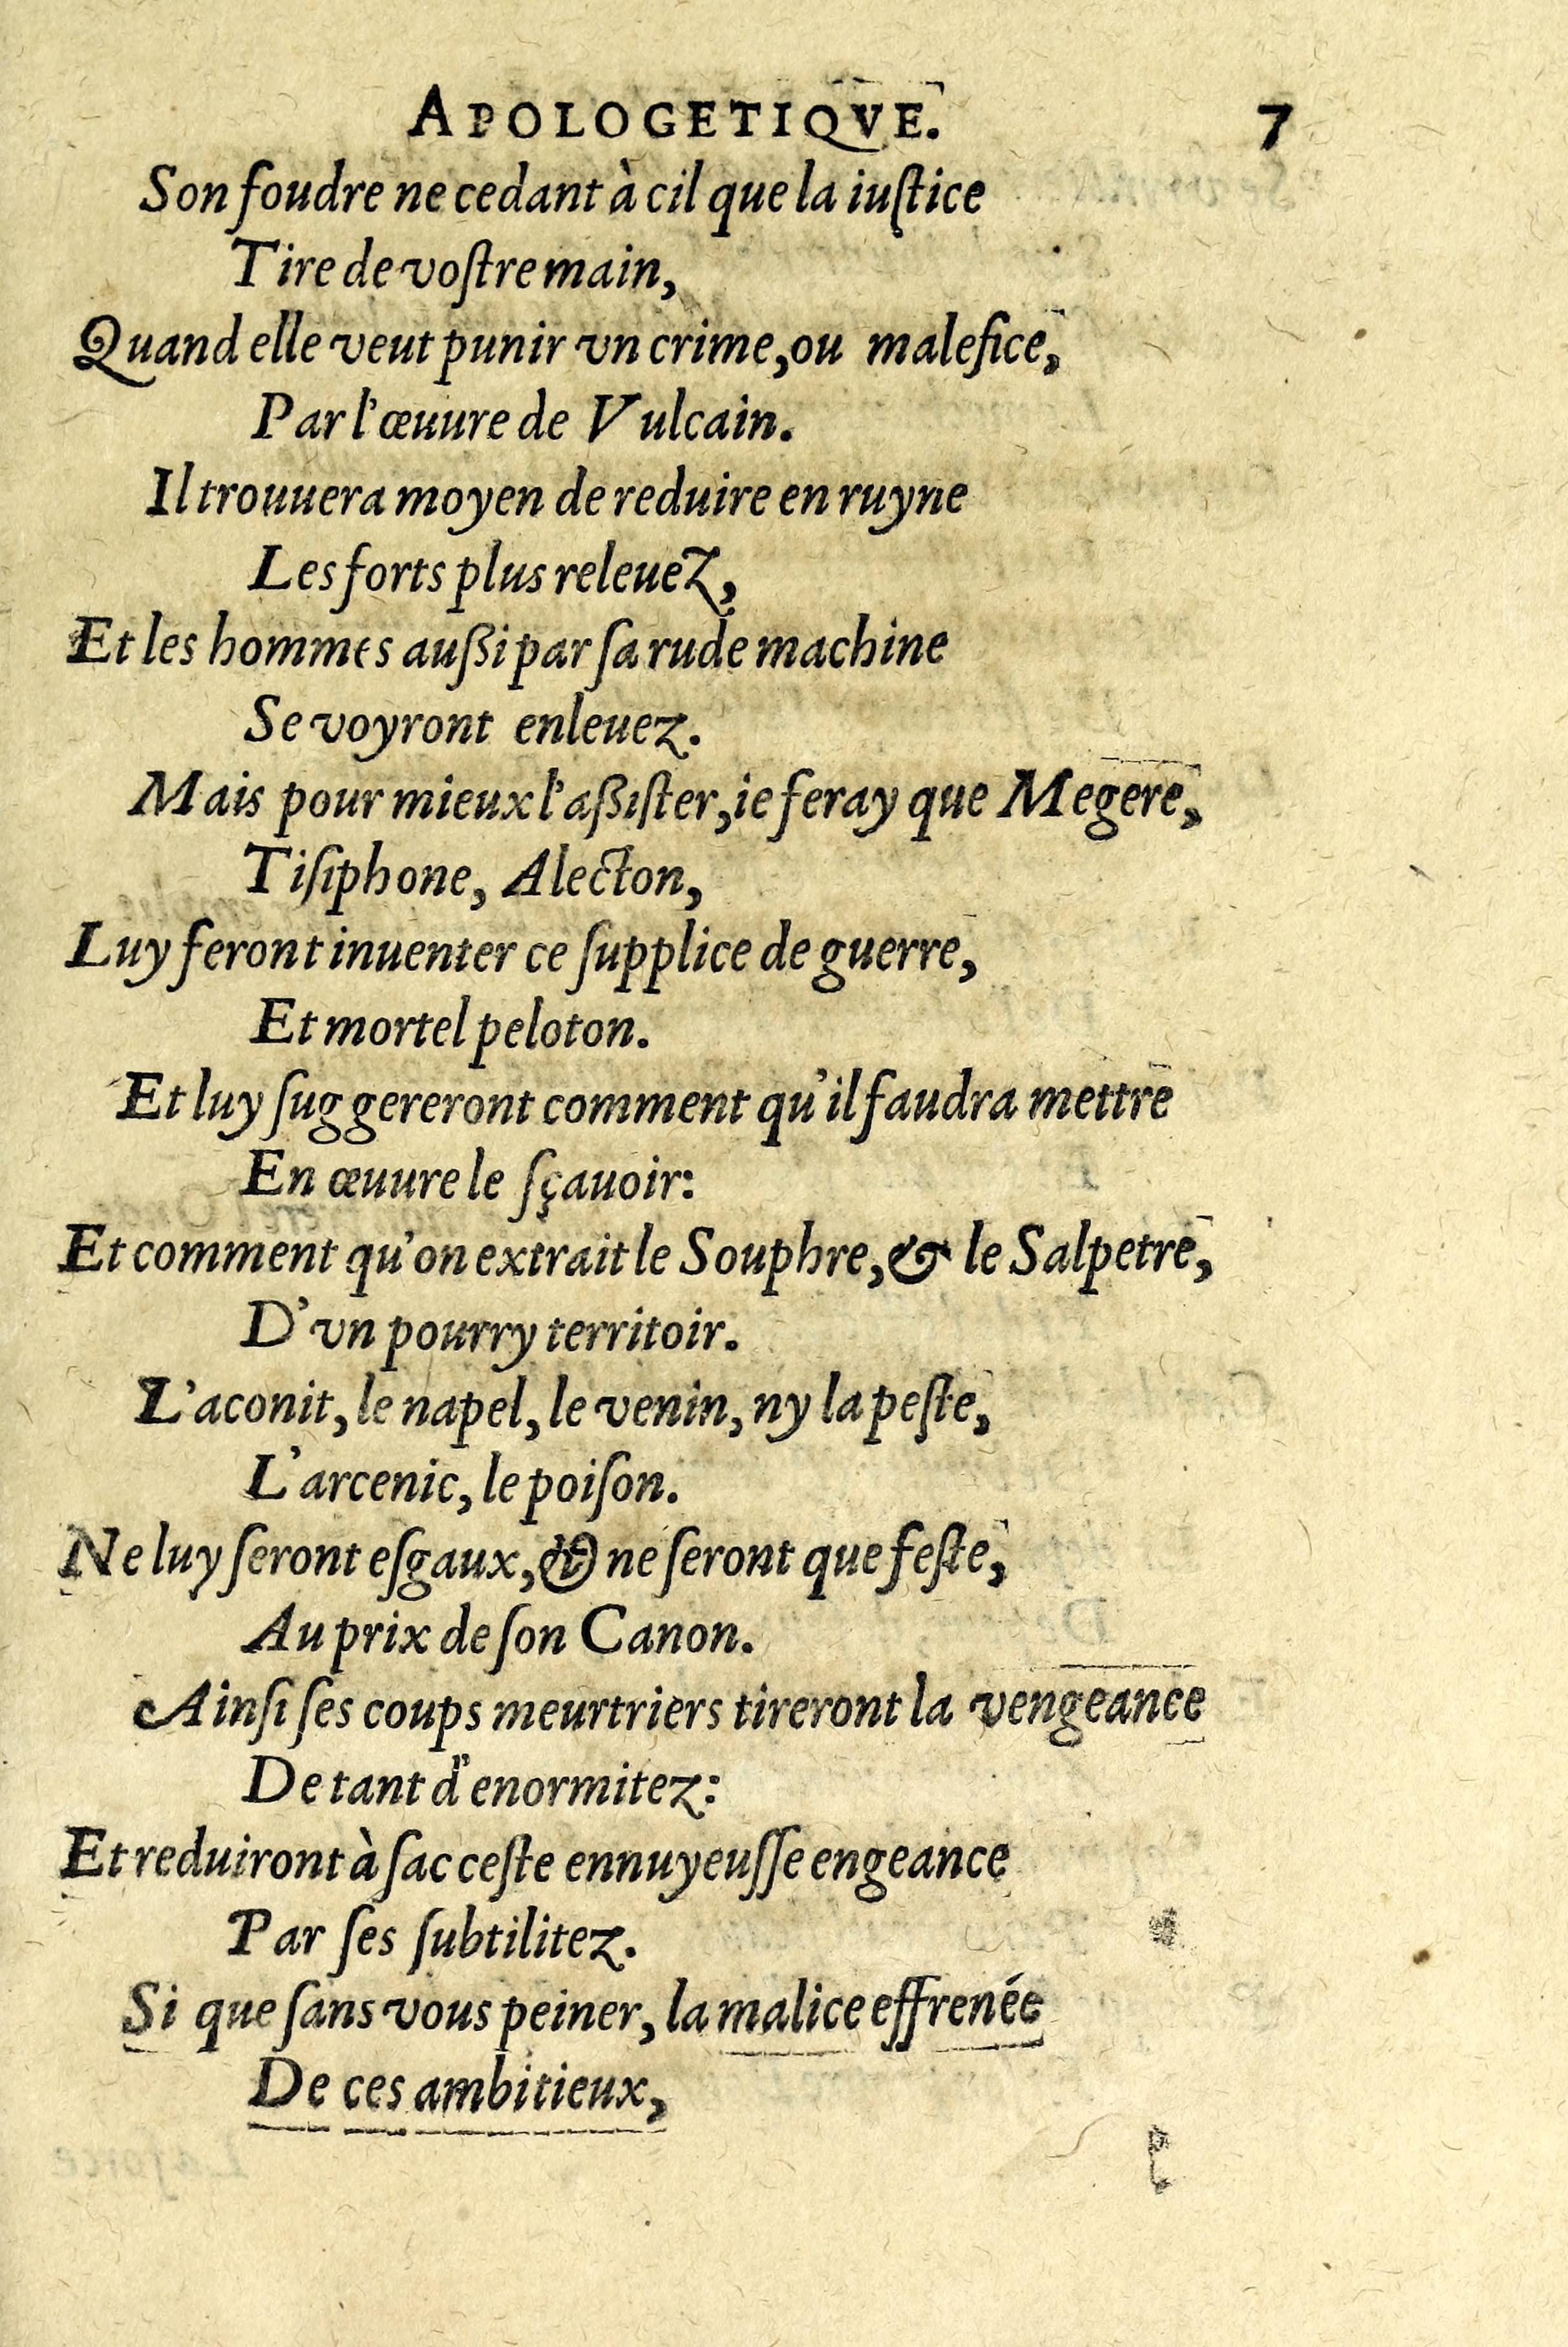 APOLOGETIQVE. 7
Son foudre ne cedant à cil que la iuſtice
Tire de voſtre main,
Quand elle veut punir vn crime, ou malefice,
Par l'œuure de Vulcain.
Il trouuera moyen de reduire en ruyne
Les forts plus releuez,
Et les hommes außi par ſa rude machine
Se voyront enleuez.
Mais pour mieux l'aßiſter, ie feray que Megere,
Tiſiphone, Alecton,
Luy feront inuenter ce ſupplice de guerre,
Et mortel peloton.
Et luy ſuggereront comment qu'il faudra mettre
En œuure le ſçauoir:
Et comment qu'on extrait le Souphre, & le Salpetre,
D'vn pourry territoir.
L'aconit, le napel, le venin, ny la peſte,
L'arcenic, le poiſon.
Ne luy ſeront eſgaux, & ne ſeront que feſte,
Au prix de ſon Canon.
Ainſi ſes coups meurtriers tireront la vengeance
De tant d'enormitez:
Et reduiront à ſac ceſte ennuyeuſſe engeance
Par ſes ſubtilitez.
Si que ſans vous peiner, la malice effrenée
De ces ambitieux,